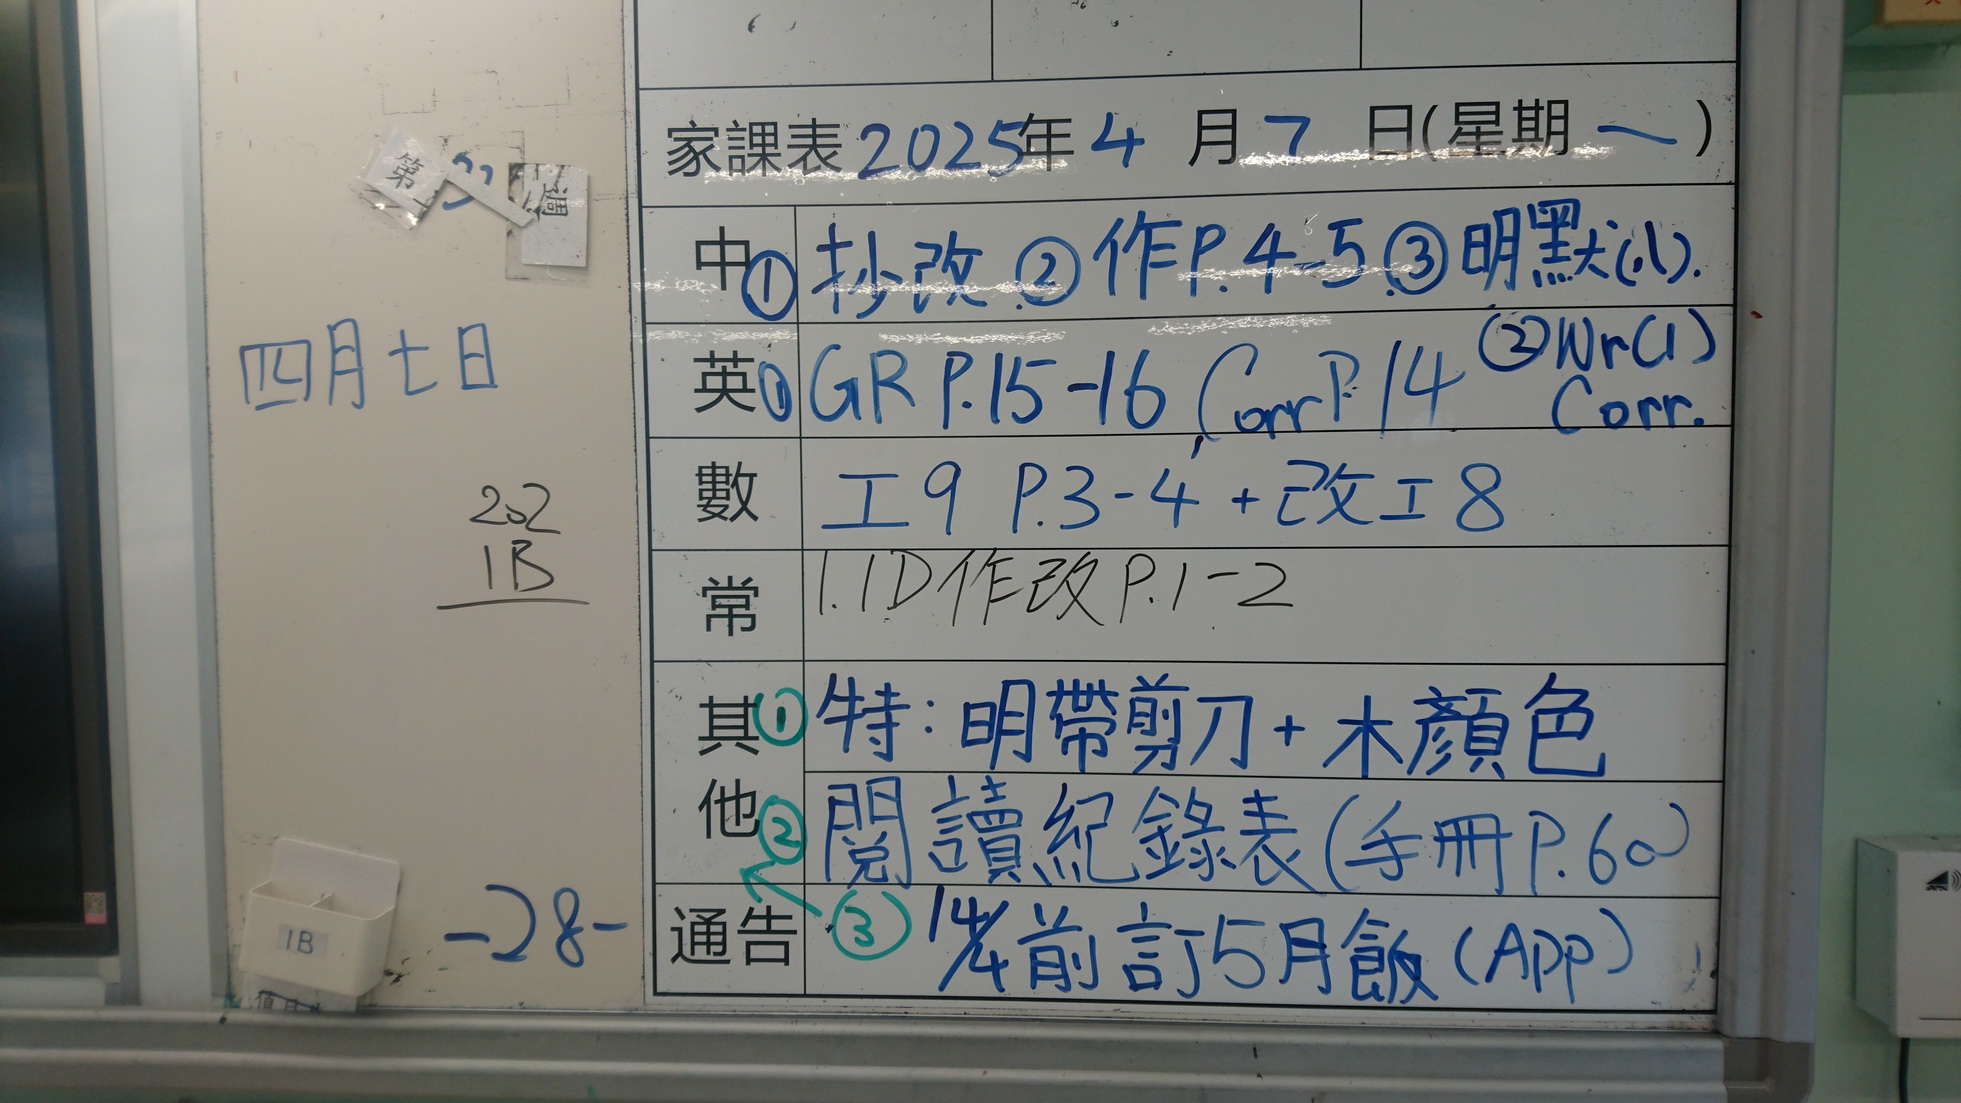 家課表 2025年 4 月 7 日(星期 一)
中 ① 抄改 ② 作P.4-5 ③ 明默(1).
英 ① GR P.15-16, Corr P.14 ② Wr(1) Corr.
數 工9 P.3-4 + 改工8
常 1.1D作改P.1-2
其他 ① 特：明帶剪刀+木顏色
② 閱讀紀錄表(手冊P.60)
通告 ③ 14/4前訂5月飯(App)
第
週
四月七日
1B
-28-
1B